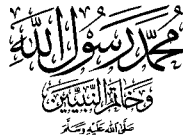 محمد رسول الله
وخاتم النبيين
صلى الله عليه وسلم